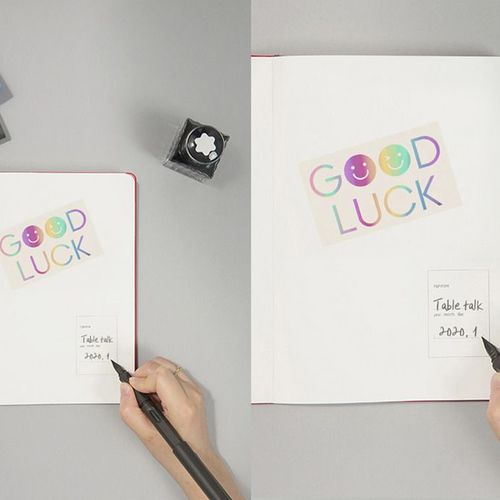 GOOD
LUCK
Table talk
2020. 1
GOOD
LUCK
signature
Table talk
year. month. day
2020. 1